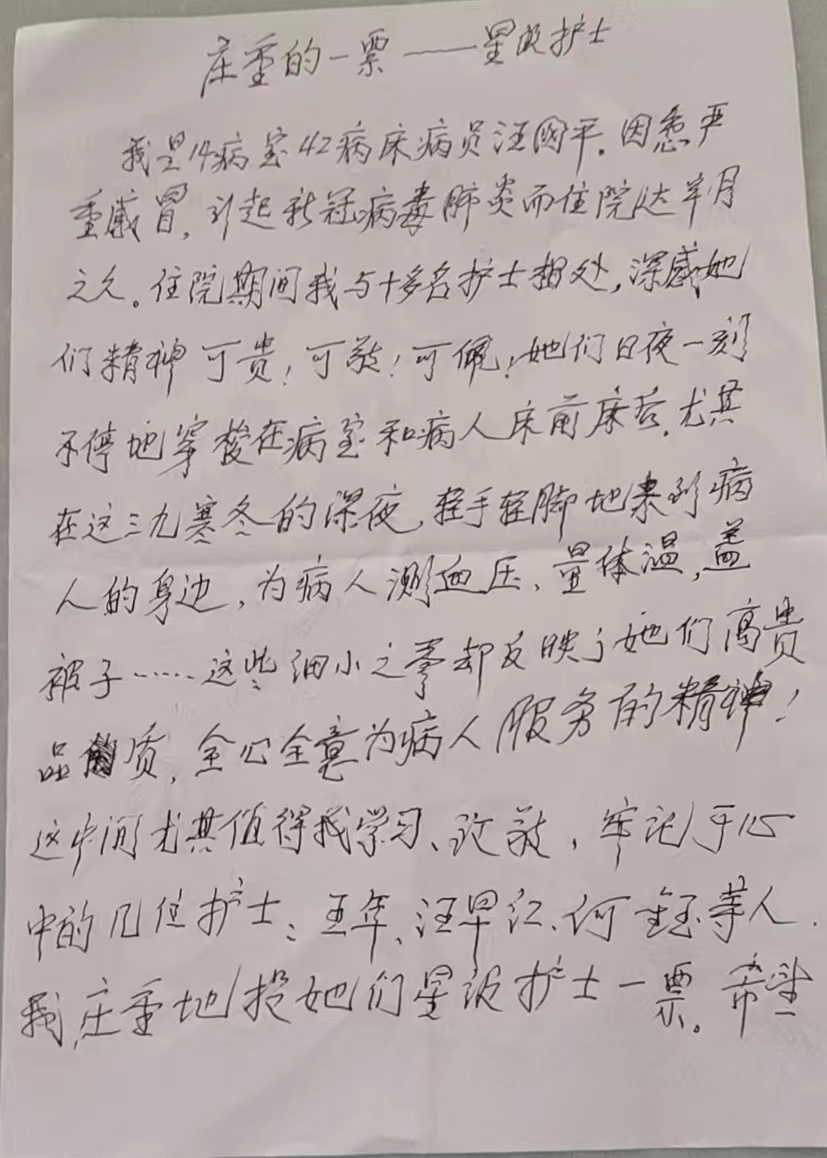 庄重的一票——星级护士
我是14病室42病床病员汪国平.因患严
重感冒,引起新冠病毒肺炎而住院达半月
之久。住院期间我与十多名护士相处,深感她
们精神可贵!可敬!可佩!她们日夜一刻
不停地穿梭在病室和病人床前床后.尤其
在这三九寒冬的深夜,轻手轻脚地来到病
人的身边,为病人测血压、量体温,盖
被子……这些细小之事却反映了她们高贵
品质,全心全意为病人服务的精神!
这中间尤其值得我学习、致敬,牢记于心
中的几位护士:王年、汪早红、何钰等人.
我,庄重地投她们星级护士一票。希望